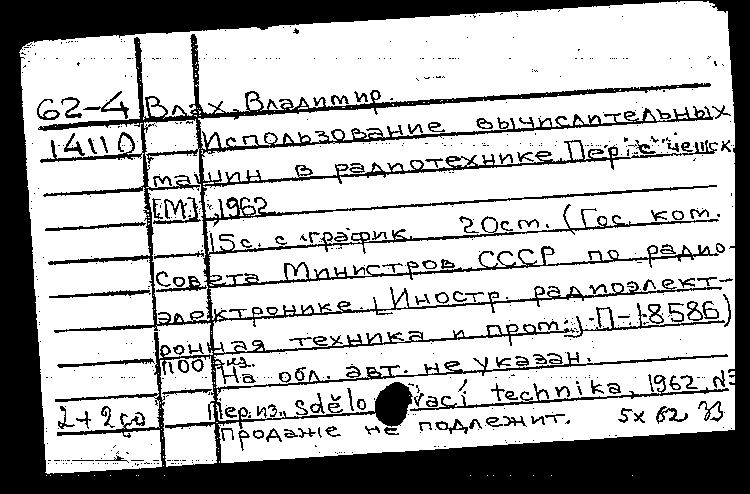 62-4 Влах, Владимир.
14110 Использование вычислительных
машин в радиотехнике. Пер. с чешск.
[М], 1962
15 с. с график. 20 см. (Гос. ком.
Совета Министров СССР по радио-
электронике. [Иностр. радиоэлект-
ронная техника и пром.] П-18586)
1100 экз.
На обл. авт. не указан.
2+2 Пер. из: Sdělovací technika, 1962, N3
Продаже не подлежит. 5х 62